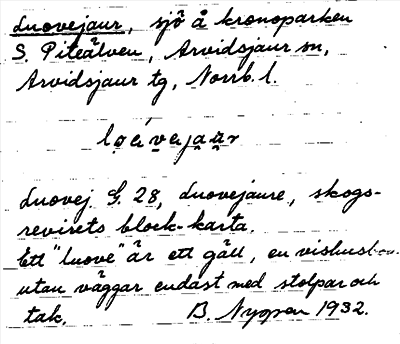 Luovejaur, sjö å kronoparken
S. Piteälven, Arvidsjaur sn,
Arvidsjaur tg, Norrb. l.
Luovej. G. 28, Luovejaure, skogs-
revirets block-karta.
Ett "luove" är ett gäll, en vishusbo
utan väggar endast med stolpar och
tak. B. Nygren 1932.